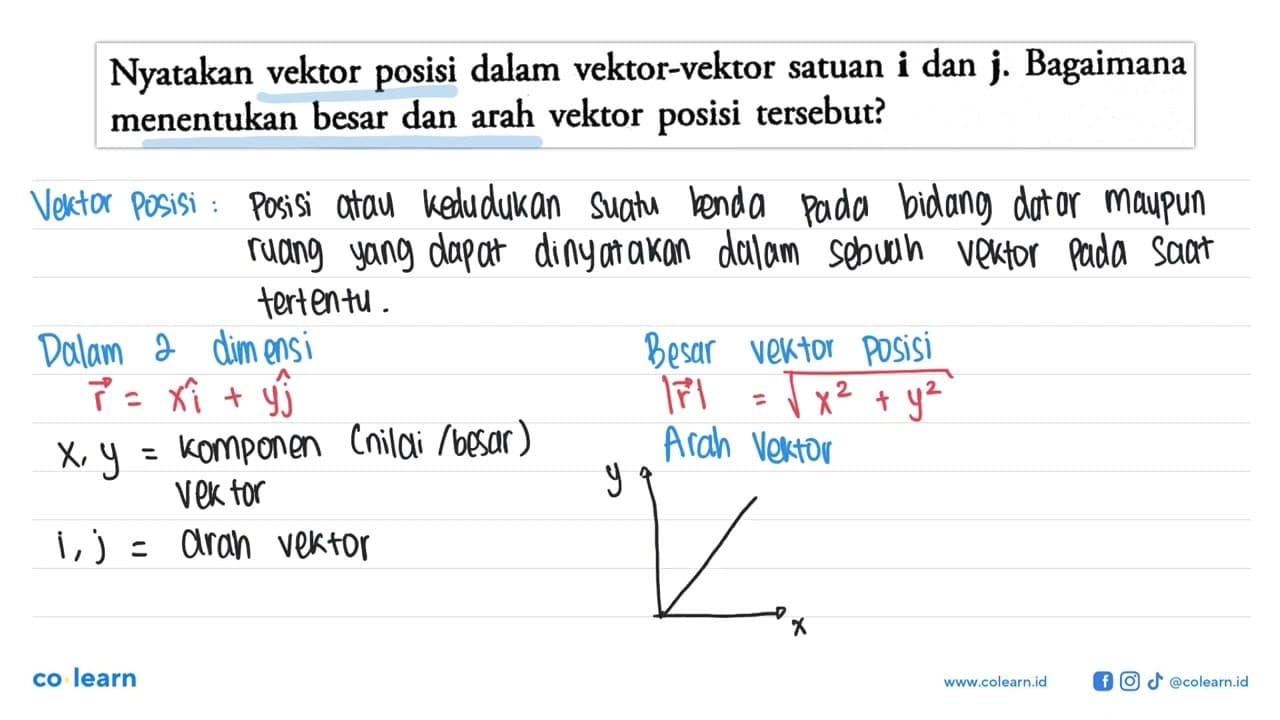 Nyatakan vektor posisi dalam vektor-vektor satuan i dan j. Bagaimana
menentukan besar dan arah vektor posisi tersebut?
Vektor Posisi : Posisi atau kedudukan suatu benda pada bidang datar maupun
ruang yang dapat dinyatakan dalam sebuah vektor pada saat
tertentu.
Dalam 2 dimensi
r⃗ = xî + yĵ
x, y = komponen (nilai/besar)
vektor
i, j = arah vektor
Besar vektor posisi
|r⃗| = √(x² + y²)
Arah Vektor
y
x
co learn
www.colearn.id
@colearn.id